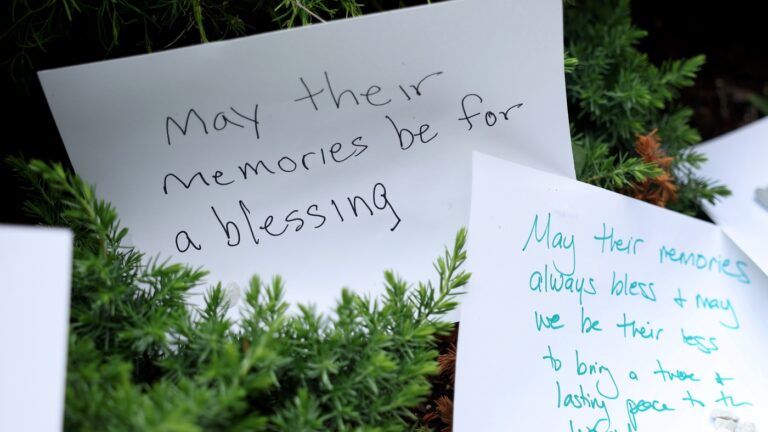 May their
memories be for
a blessing
May their memories
always bless & may
we be their
to bring a true &
lasting peace to